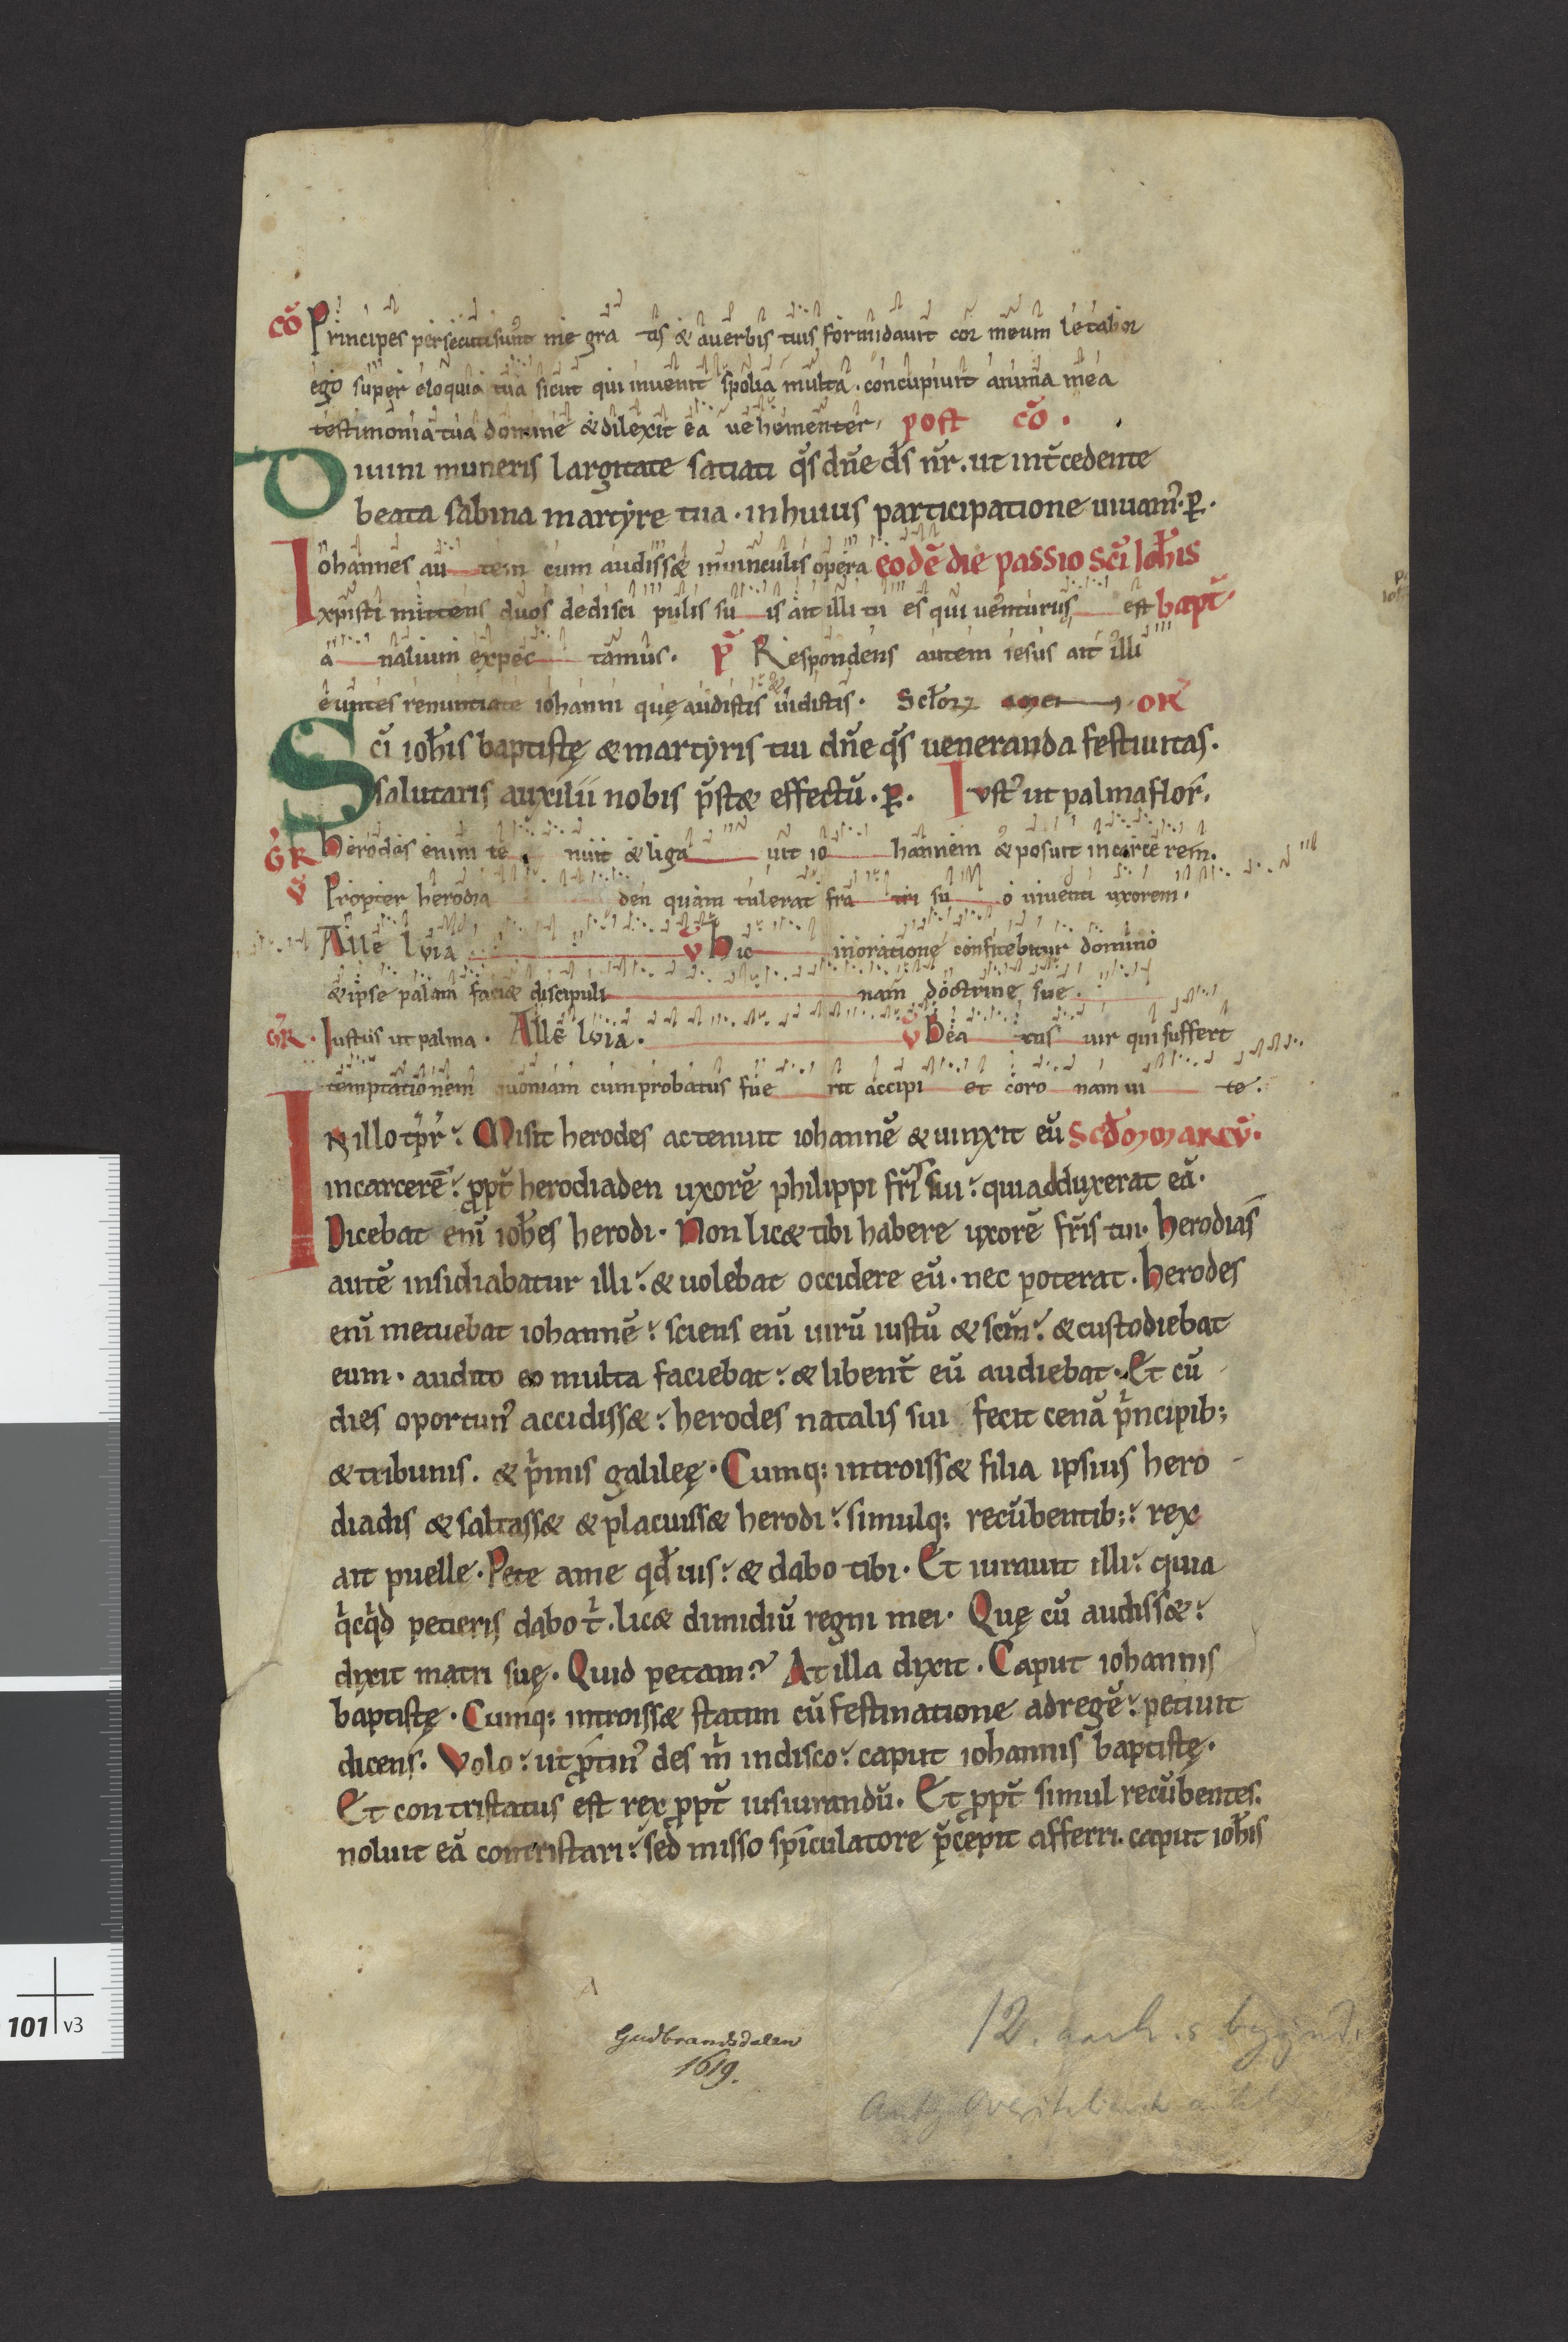 cō Principes persecuti sunt me gra tis & a uerbis tuis formidauit cor meum letabor
ego super eloquia tua sicut qui inuenit spolia multa . concupiuit anima mea
testimonia tua domine & dilexit ea ue hementer, post cō .
Diuini muneris largitate satiati q̄s dn̄e ds̄ nr̄ . ut int̄cedente
beata sabina martyre tua . in huius participatione uiuam᾽ . ꝑ .
Iohannes au tem cum audissæ in uinculis opera eodē die passio sc̄i Ioh̄is
xp̄isti mittens duos de disci pulis su is ait illi tu es qui uenturus est bapt̄ .
a n alium expec tamus . P̄ Respondens autem iesus ait illi
euntes renuntiate iohanni quę audistis & uidistis . or̄
Sc̄i ioh̄is baptistę & martyris tui dn̄e q̄s ueneranda festiuitas .
Ssalutaris auxilii nobis p̄stæ effectū . ꝑ . Iust᾽ ut palma flor̄ .
GR̄ Herodes enim te nuit & liga uit io hannem & posuit in carce rem .
V̄ Propter herodia den quam tulerat fra tri su o uiuenti uxorem .
Alle luia V̄ hic in oratione confitebitur domino
& ipse palam faciæ discipuli nam doctrine sue .
GR̄ . Iustus ut palma . Alle luia . V̄ Bea tus uir qui suffert
temptationem quoniam cum probatus fue rit accipi et coro nam ui te .
IN illo tp̄r̄ : Misit herodes ac tenuit iohannē & uinxit eū Scd̄m marcū .
in carcerē : ꝓpt̄ herodiaden uxorē philippi fr̄is sui : quia dduxerat eā .
Dicebat eni̅ ioh̄es herodi . Non licæ tibi habere uxorē fr̄is tui . herodias
autē insidiabatur illi : & uolebat occidere eū . nec poterat . herodes
eni̅ metuebat iohannē : sciens eni̅ uirū iustū & sc̄m : & custodiebat
eum . audito eo multa faciebat : & libent̄ eū audiebat . Et cū
dies oportun᾽ accidissæ : herodes natalis sui fecit cenā pⁱncipib;
& tribunis . & pⁱmis galileę . Cumq; introissæ filia ipsius hero -
diadis & saltassæ & placuissæ herodi : simulq; recūbentib; : rex
ait puelle . Pete a me qd̄ uis : & dabo tibi . Et iurauit illi : quia
qⁱcqⁱd petieris dabo tⁱ . licæ dimidiū regni mei . Quę cū audissæ :
dixit matri suę . Quid petam ? At illa dixit . Caput iohannis
baptistę . Cumq; introissæ statim cū festinatione ad regē : petiuit
dicens . Volo : ut ꝓtin᾽ des mⁱ in disco : caput iohannis baptistę .
Et contristatus est rex ꝓpt̄ iusiurandū . Et ꝓpt̄ simul recūbentes .
noluit eā contristari : sed misso spiculatore p̄cepit afferri . caput ioh̄is
Gudbrandsdalen
1619.
12. aarh.s begynd.
101 v3